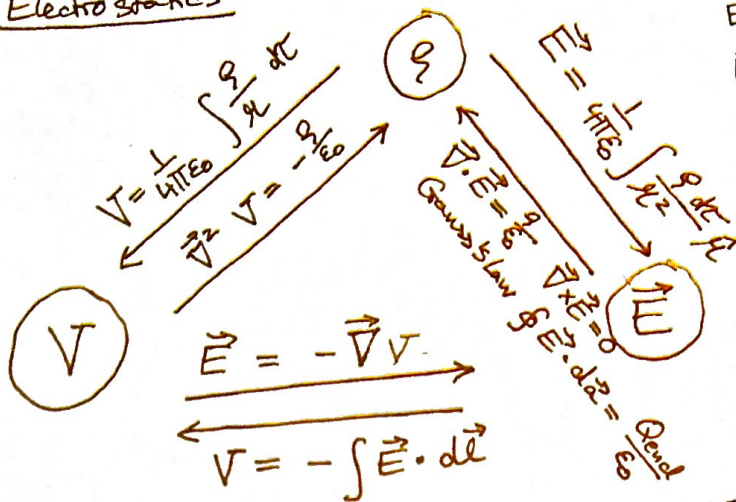 Electrostatics
ρ
V = 1/4πε₀ ∫ ρ/r dτ
∇⃗² V = -ρ/ε₀
E⃗ = 1/4πε₀ ∫ ρ dτ/r² r̂
∇⃗·E⃗ = ρ/ε₀ ∇⃗×E⃗=0
Gauss's law ∮ E⃗·da⃗ = Qencl/ε₀
V
E⃗
E⃗ = -∇⃗V
V = -∫E⃗·dl⃗